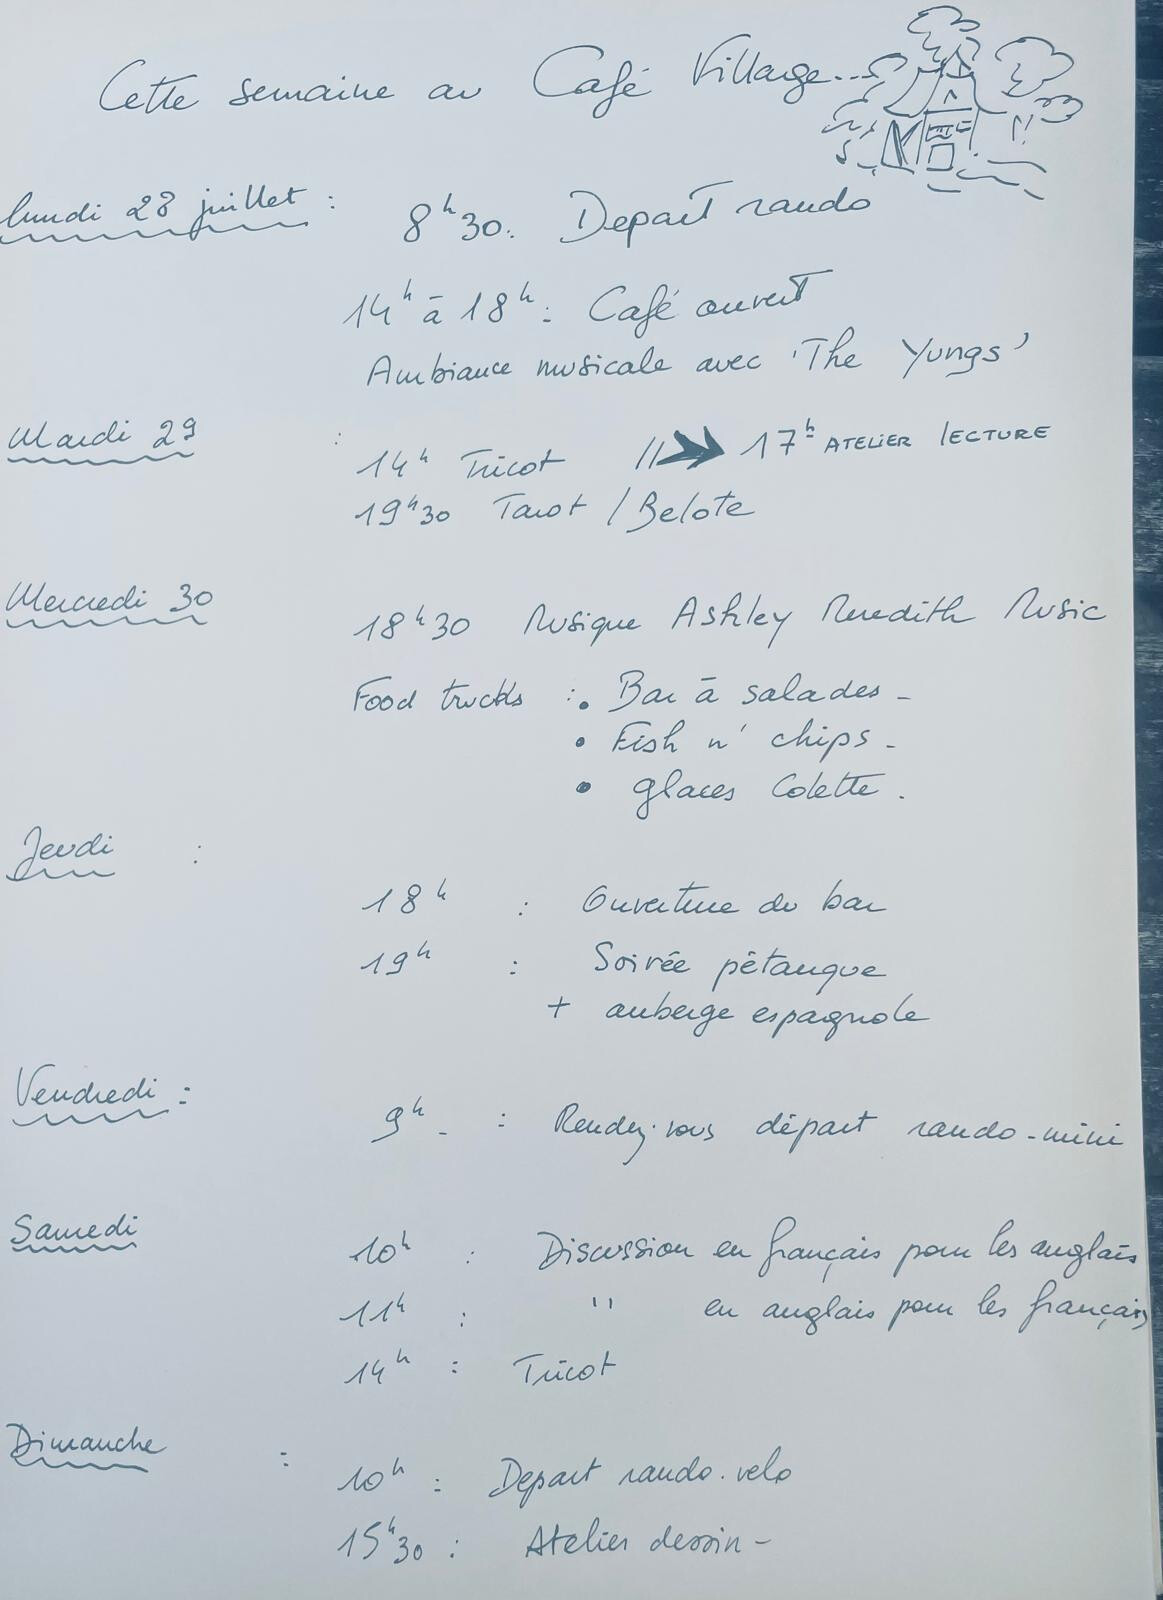 Cette semaine au Café Village...
lundi 28 juillet :
8h30. Depart rando
14h à 18h : Café ouvert
Ambiance musicale avec 'The Yungs'
Mardi 29 :
14h Tricot // 17h ATELIER LECTURE
19h30 Tarot / Belote
Mercredi 30
18h30 Musique Ashley Meredith Music
Food trucks : • Bar à salades -
• Fish n' chips -
• glaces Colette.
Jeudi :
18h : Ouverture du bar
19h : Soirée pétanque
+ auberge espagnole
Vendredi :
9h - : Rendez-vous départ rando-mini
Samedi
10h : Discussion en français pour les anglais
11h : " en anglais pour les français
14h : Tricot
Dimanche :
10h : Depart rando. velo
15h30 : Atelier dessin -